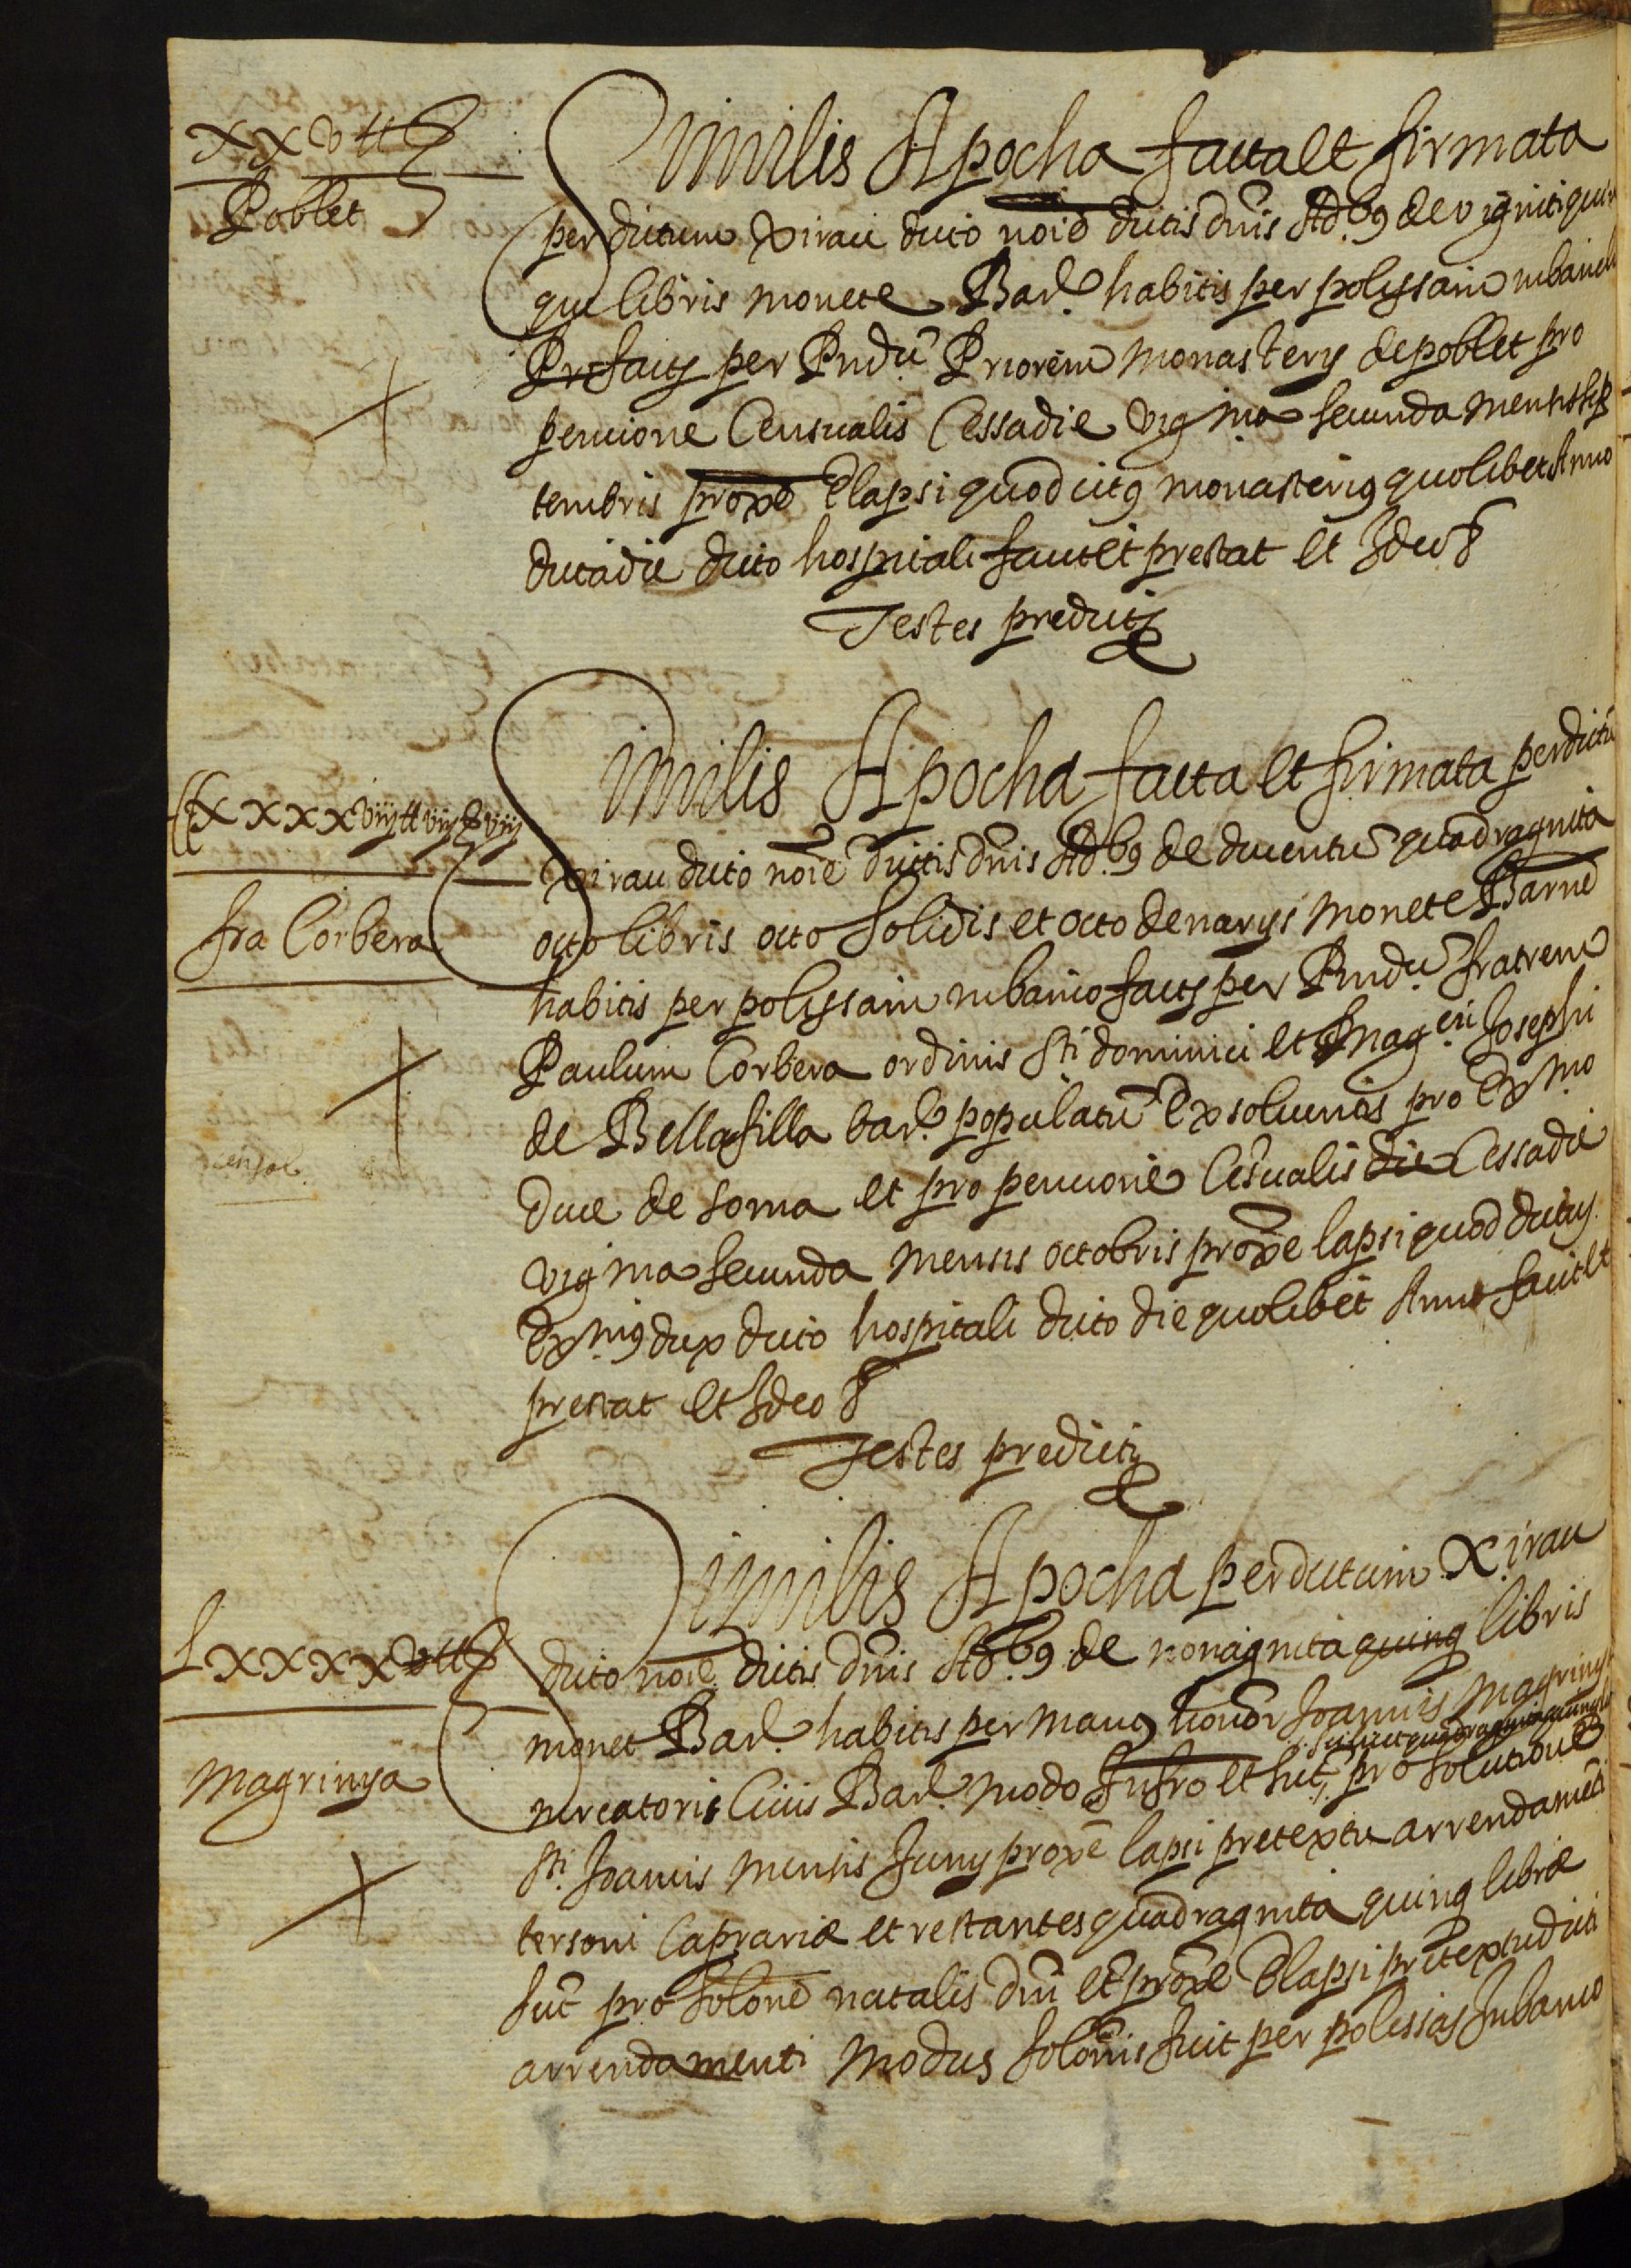 XXV ₶
Poblet
Similis Apocha facta et firmata
per dictum Xirau dicto noie dictis dnis Adb9 de viginti quin
que libris monete Bar. habitis per polissam in banch
factis per Rndu Priorem Monasterii de poblet pro
pencione Censualis Cessa die vigma secunda mensis sep
tembris prope Elapsi quod dict9 monasteriu9 quolibet Anno
dicta die dicto hospitali facit et prestat et Ideo &
Testes predicti
CCXXXXviij ₶ viij s viij
fra Corbera
censal
Similis Apocha facta et firmata per dictu
Xirau dicto noie dictis dnis Adb9 de ducentu quadraginta
octo libris octo solidis et octo denariis monete Barne
habitis per polissam in banco factis per Rndu fratrem
Paulum Corbera ordinis Sti dominici et Magci Josephi
de Bellafilla bar. populatu Exsoluentes pro Exmo
Duce de soma et pro pencione Cesualis die Cessa die
vigma secunda mensis octobris proxe lapsi quod dictus
Exm9 dux dicto hospitali dicto die quolibet Anno facit et
prestat et Ideo &
Testes predicti
LXXXXV ₶
Magrinya
Similis Apocha per dictum Xirau
dicto noie dictis dnis Adb9 de nonaginta quinq libris
monet Bar. habitis per manus honor Joannis Magrinya
scilicet quadraginta quinq
mercatoris Ciuis Bar. modo Infro et sut pro solutione
Sti Joanis mensis Juny proxe lapsi pretextu arrendameti
tersoni Caprariæ et restantes quadraginta quinq libræ
sut pro solone natalis dni et proxe Elapsi pretextu dicti
arrendamenti Modus solonis fuit per polissas In banco